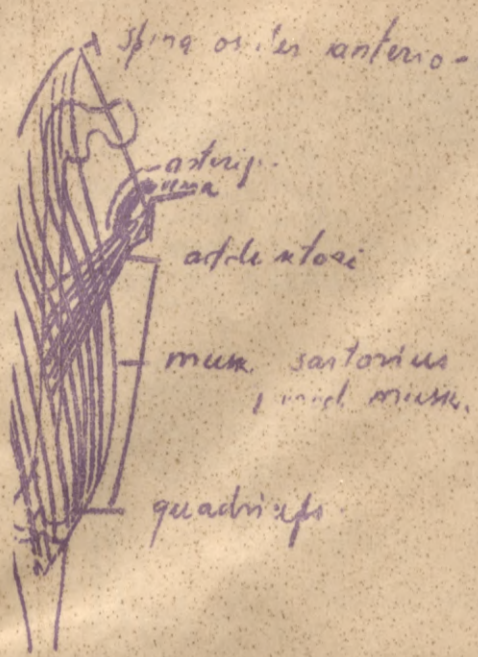 spina os ilei anterio-
arterij.
vena
adduktori
musk. sartorius
musk.
quadriceps